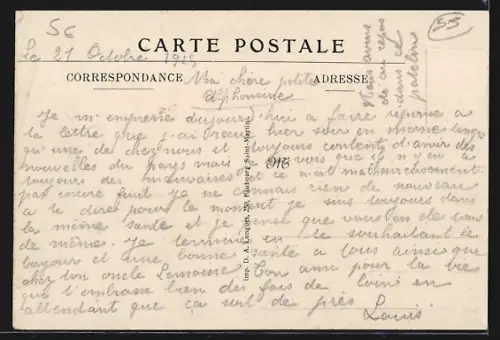 56
55
CARTE POSTALE
Le 21 Octobre 1915
CORRESPONDANCE
ADRESSE
Ma chère petite
Alphonsine
Nous avons
été au repos
dans ce
patelin
Je m'empresse aujourd'hui a faire reponse a
la lettre que j'ai recue hier soir en meme temps
qu'une de chez nous et toujours content d'avoir des
nouvelles du pays mais je vois que il n'y en a
toujours des mauvaises et ce n'ait malheureusement
pas encore finit je ne connais rien de nouveau
a te dire pour le moment je suis toujours dans
la même santé et je pense que vous en de tous
de même. Je termine en te souhaitant le
bonjour et une bonne santé a tous ainsi que
chez ton oncle Ton ami pour la vie
que t'embrasse bien des fois de loin en
attendant que ça soit de près
Louis
916
Imp. D. A. Longuet, 250, Faubourg Saint-Martin